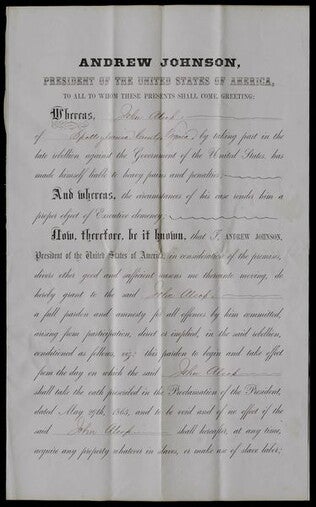 ANDREW JOHNSON,
PRESIDENT OF THE UNITED STATES OF AMERICA,
TO ALL TO WHOM THESE PRESENTS SHALL COME, GREETING:
Whereas, John Alsop
of Spottsylvania County, by taking part in the
late rebellion against the Government of the United States, has
made himself liable to heavy pains and penalties
And whereas, the circumstances of his case render him a
proper object of Executive clemency;
Now, therefore, be it known, that I, ANDREW JOHNSON,
President of the United States of America, in consideration of the premises,
divers other good and sufficient reasons me thereunto moving, do
hereby grant to the said John Alsop
a full pardon and amnesty for all offences by him committed,
arising from participation, direct or implied, in the said rebellion,
conditioned as follows, viz: this pardon to begin and take effect
from the day on which the said John Alsop
shall take the oath prescribed in the Proclamation of the President,
dated May 29th, 1865, and to be void and of no effect if the
said John Alsop shall hereafter, at any time,
acquire any property whatever in slaves, or make use of slave labor;